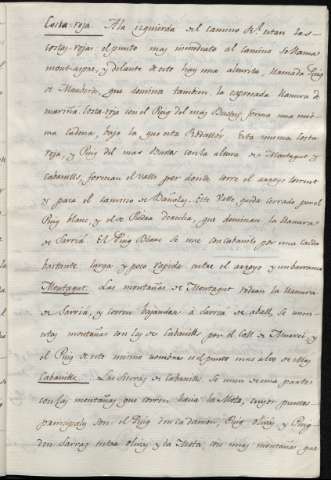 Costa-roja. A la izquierda del camino Rl. estan las
costas-rojas el punto mas inmediato al camino se llama
mont-aspre, y delante de este hay una alturita, llamada Puig
de Maubrin, que domina tambien la expresada llanura de
mariña. Costa-roja con el Puig del mas Budas, forma una mis-
ma cadena, bajo la que esta Medallos. Esta misma Costa
roja, y Puig del mas Budas con la altura de Montagut y
cabanells, forman el Valle por donde corre el arroyo torrent
y para el camino de Bañolas. Este Valle queda cerrado por el
Puig blanc y el de Pedra descuelia, que dominan la llanura
de Sarria. El Puig Blanc se une con cabanells por una caida
bastante larga y poco rapida entre el arroyo y un barranco
Montagut. Las montañas de Montagut rodean la llanura
de Sarria, y corren bajandose a Sarria de aball, se unen
estas montañas con las de Cabanells por el Coll de y
el Puig de este mismo nombre es el punto mas alto de ellas
Cabanells. Las sierras de Cabanells se unen de una parte
con las montañas que corren hacia la Mota, cuyos puntos
principales son el Puig den cadamon, Puig olivas y Puig
den Sarras entre olivas y la Mota, con mas montañas que